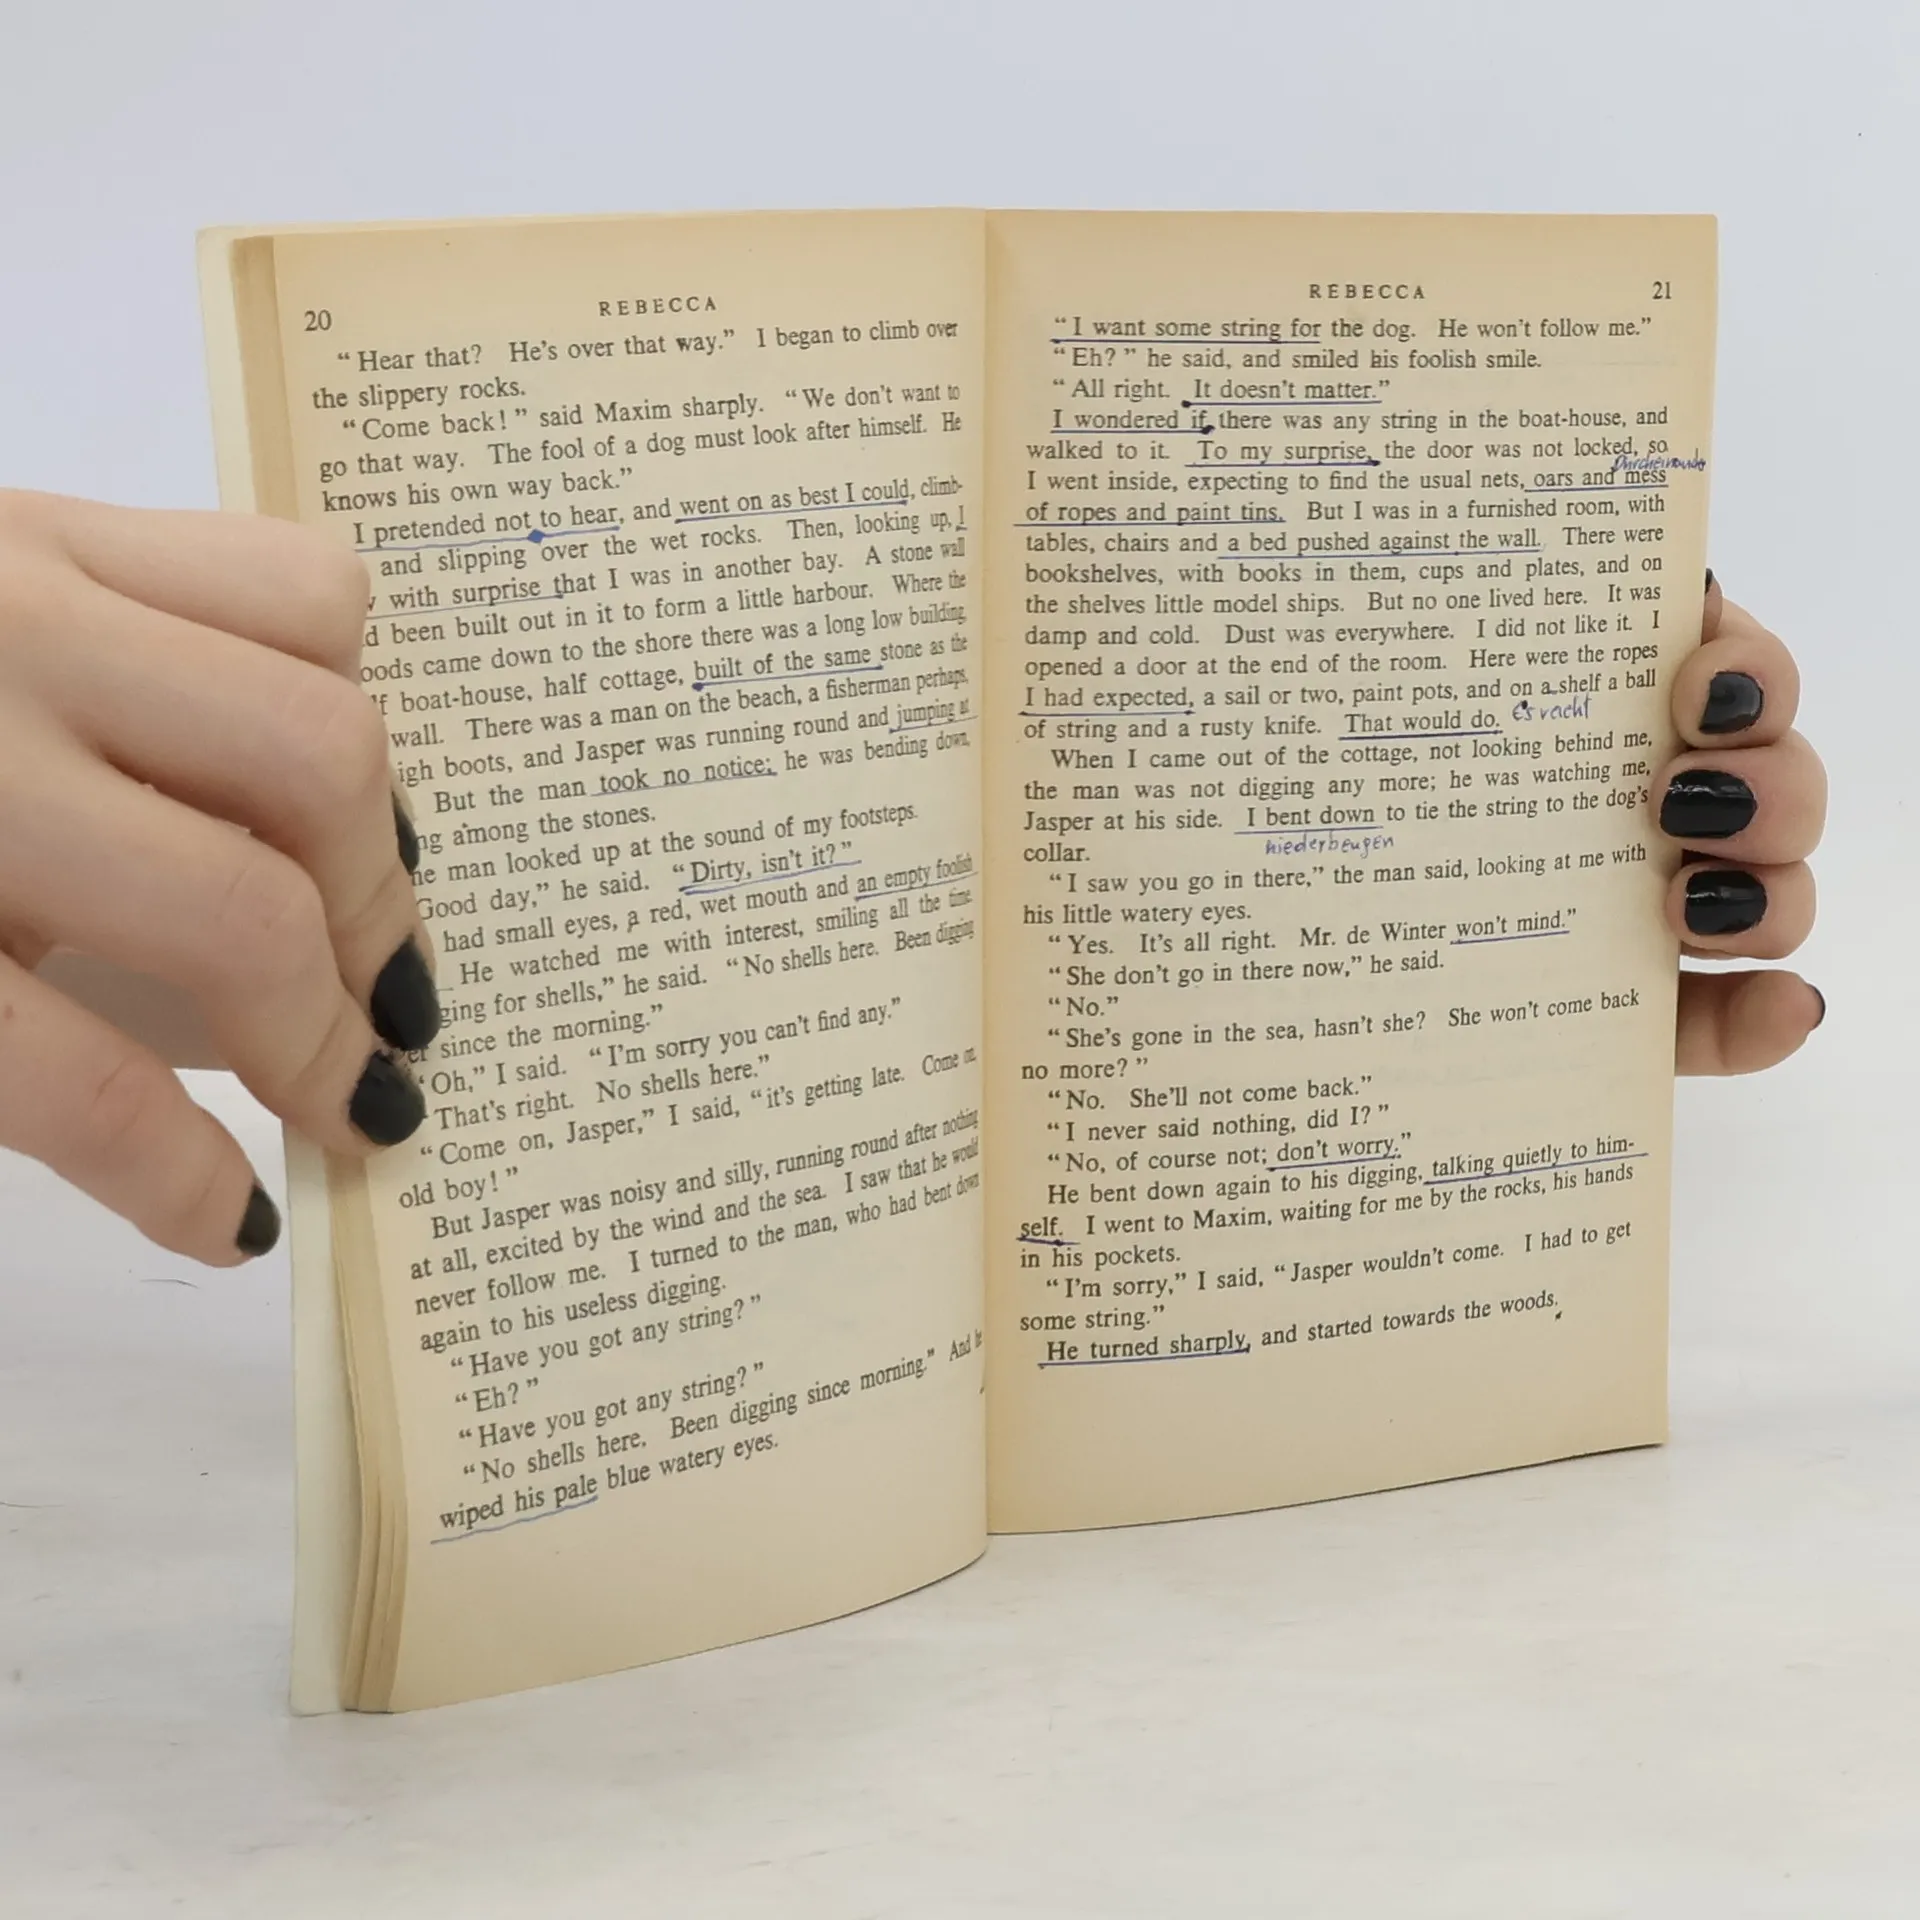 20
REBECCA
“Hear that? He’s over that way.” I began to climb over
the slippery rocks.
“Come back!” said Maxim sharply. “We don’t want to
go that way. The fool of a dog must look after himself. He
knows his own way back.”
I pretended not to hear, and went on as best I could, climb-
and slipping over the wet rocks. Then, looking up, I
with surprise that I was in another bay. A stone wall
been built out in it to form a little harbour. Where the
came down to the shore there was a long low building,
boat-house, half cottage, built of the same stone as the
wall. There was a man on the beach, a fisherman perhaps,
boots, and Jasper was running round and jumping at
But the man took no notice; he was bending down,
among the stones.
man looked up at the sound of my footsteps.
Good day,” he said. “Dirty, isn’t it?”
had small eyes, a red, wet mouth and an empty foolish
He watched me with interest, smiling all the time.
ging for shells,” he said. “No shells here. Been digging
since the morning.”
“Oh,” I said. “I’m sorry you can’t find any.”
“That’s right. No shells here.”
“Come on, Jasper,” I said, “it’s getting late. Come on,
old boy!”
But Jasper was noisy and silly, running round after nothing
at all, excited by the wind and the sea. I saw that he would
never follow me. I turned to the man, who had bent down
again to his useless digging.
“Have you got any string?”
“Eh?”
“Have you got any string?”
“No shells here. Been digging since morning.” And he
wiped his pale blue watery eyes.
REBECCA
21
“I want some string for the dog. He won’t follow me.”
“Eh?” he said, and smiled his foolish smile.
“All right. It doesn’t matter.”
I wondered if there was any string in the boat-house, and
walked to it. To my surprise, the door was not locked, so
Durcheinander
I went inside, expecting to find the usual nets, oars and mess
of ropes and paint tins. But I was in a furnished room, with
tables, chairs and a bed pushed against the wall. There were
bookshelves, with books in them, cups and plates, and on
the shelves little model ships. But no one lived here. It was
damp and cold. Dust was everywhere. I did not like it. I
opened a door at the end of the room. Here were the ropes
I had expected, a sail or two, paint pots, and on a shelf a ball
of string and a rusty knife. That would do. es
When I came out of the cottage, not looking behind me,
the man was not digging any more; he was watching me,
Jasper at his side. I bent down to tie the string to the dog’s
collar.
niederbeugen
“I saw you go in there,” the man said, looking at me with
his little watery eyes.
“Yes. It’s all right. Mr. de Winter won’t mind.”
“She don’t go in there now,” he said.
“No.”
“She’s gone in the sea, hasn’t she? She won’t come back
no more?”
“No. She’ll not come back.”
“I never said nothing, did I?”
“No, of course not; don’t worry.”
He bent down again to his digging, talking quietly to him-
self. I went to Maxim, waiting for me by the rocks, his hands
in his pockets.
“I’m sorry,” I said, “Jasper wouldn’t come. I had to get
some string.”
He turned sharply, and started towards the woods.